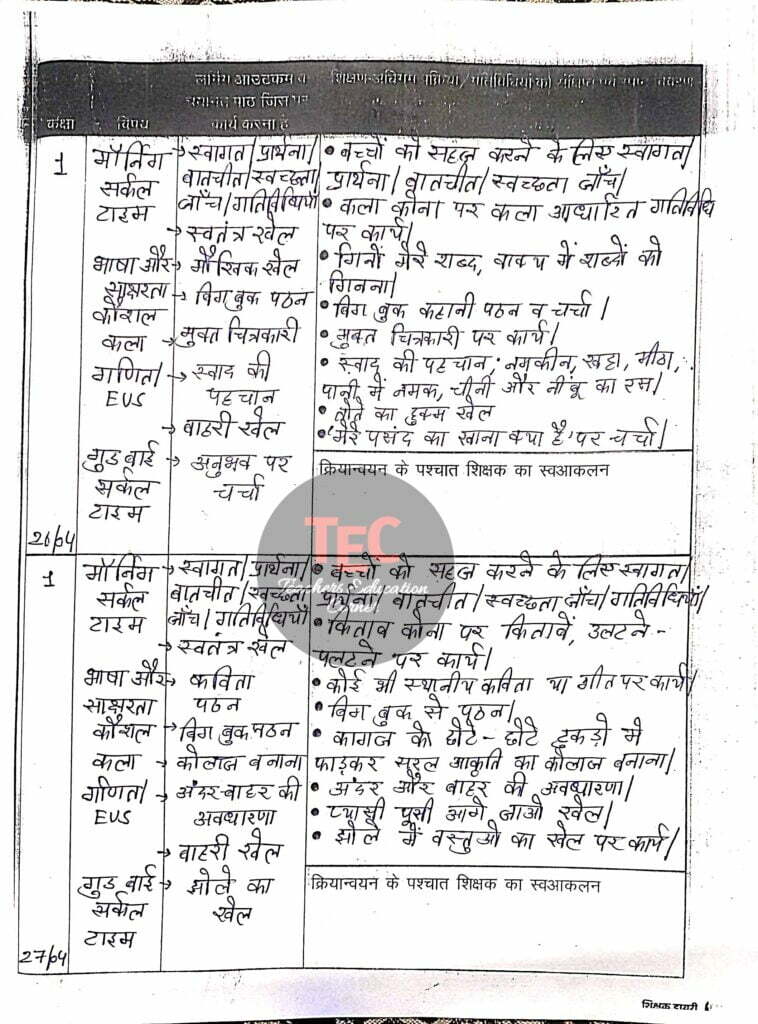 लर्निंग आउटकम व शिक्षण-अधिगम प्रक्रिया/गतिविधियों का संक्षिप्त एवं स्पष्ट विवरण
चयनित पाठ जिस पर
कक्षा विषय कार्य करना है
1
मॉर्निंग
सर्कल
टाइम
भाषा और
साक्षरता
कौशल
कला
गणित/
EVS
गुड बाई
सर्कल
टाइम
26/04
→ स्वागत/प्रार्थना/
बातचीत/स्वच्छता
जाँच/गतिविधियाँ
→ स्वतंत्र खेल
→ मौखिक खेल
→ बिग बुक पठन
→ मुक्त चित्रकारी
→ स्वाद की
पहचान
→ बाहरी खेल
→ अनुभव पर
चर्चा
• बच्चों को सहज करने के लिए स्वागत/
प्रार्थना/बातचीत/स्वच्छता जाँच/
• कला कोना पर कला आधारित गतिविधि
पर कार्य/
• गिनों मेरे शब्द, वाक्य में शब्दों को
गिनना/
• बिग बुक कहानी पठन व चर्चा/
• मुक्त चित्रकारी पर कार्य/
• स्वाद की पहचान; नमकीन, खट्टा, मीठा,
पानी में नमक, चीनी और नींबू का रस/
• तोते का हुक्म खेल
• 'मेरे पसंद का खाना क्या है' पर चर्चा/
क्रियान्वयन के पश्चात शिक्षक का स्वआकलन
TEC
Teachers Education
Corner
1
मॉर्निंग
सर्कल
टाइम
भाषा और
साक्षरता
कौशल
कला
गणित/
EVS
गुड बाई
सर्कल
टाइम
27/04
→ स्वागत/प्रार्थना/
बातचीत/स्वच्छता
जाँच/गतिविधियाँ
→ स्वतंत्र खेल
→ कविता
पठन
→ बिग बुक पठन
→ कोलाज बनाना
→ अंदर-बाहर की
अवधारणा
→ बाहरी खेल
→ झोले का
खेल
• बच्चों को सहज करने के लिए स्वागत/
प्रार्थना/बातचीत/स्वच्छता जाँच/गतिविधियाँ/
• किताब कोना पर किताबें, उलटने-
पलटने पर कार्य/
• कोई भी स्थानीय कविता या गीत पर कार्य/
• बिग बुक से पठन/
• कागज के छोटे-छोटे टुकड़ो मे
फाड़कर सरल आकृति का कोलाज बनाना/
• अंदर और बाहर की अवधारणा/
• प्यासी पूसी आगे जाओ खेल/
• झोले में वस्तुओ का खेल पर कार्य/
क्रियान्वयन के पश्चात शिक्षक का स्वआकलन
शिक्षक डायरी